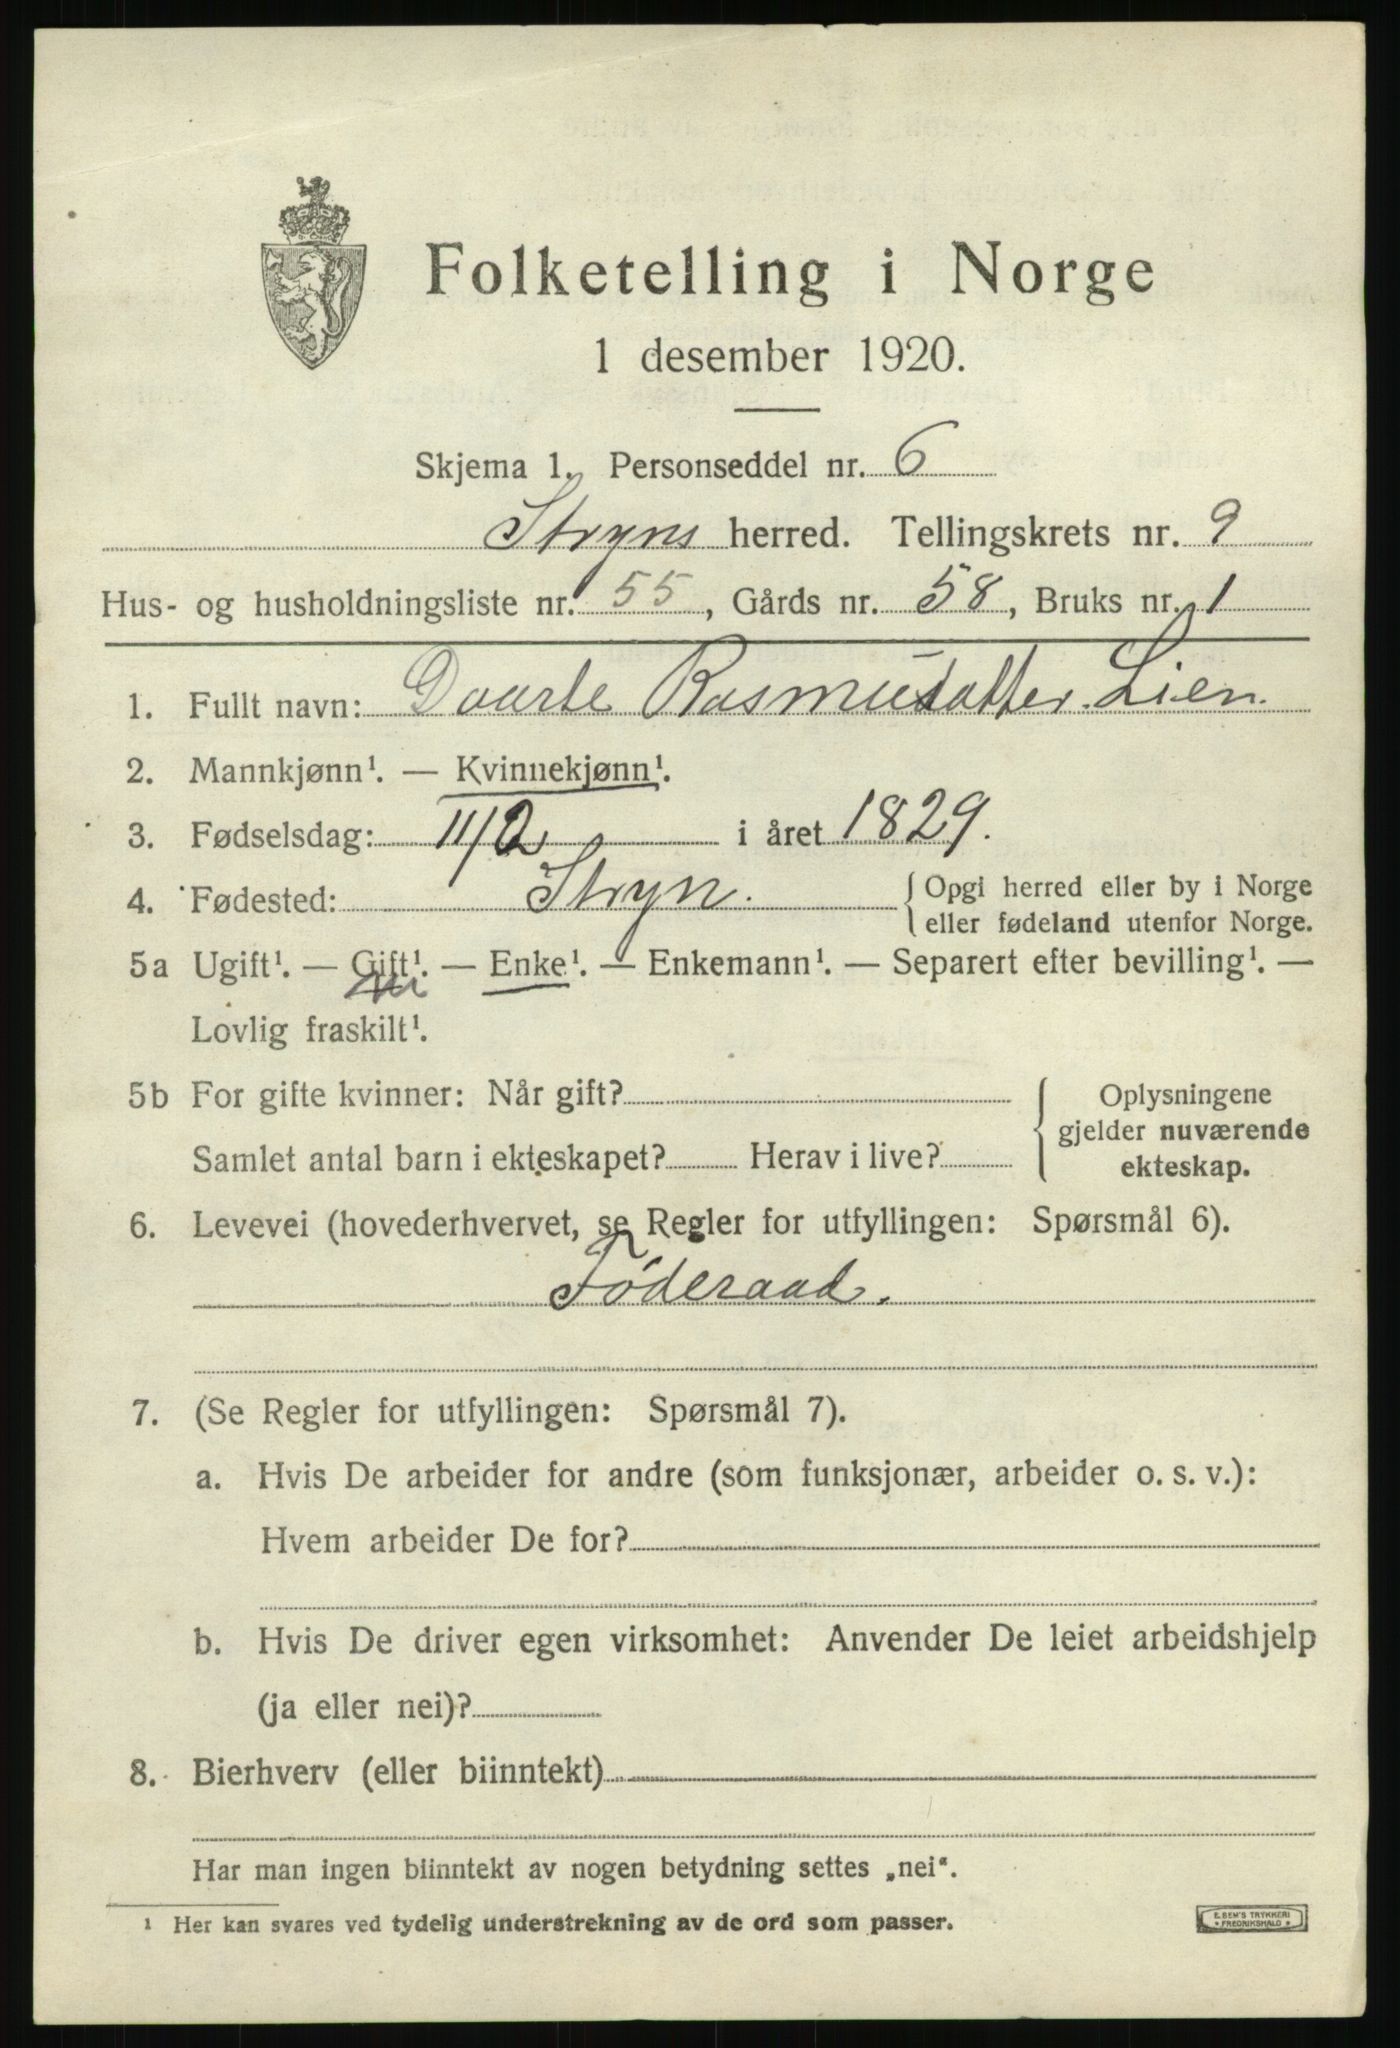 Folketelling i Norge
1 desember 1920.
Skjema 1. Personseddel nr. 6
Stryns herred. Tellingskrets nr. 9
Hus- og husholdningsliste nr. 55, Gårds nr. 58, Bruks nr. 1
1. Fullt navn: Daarte Rasmusdatter Lien.
2. Mannkjønn¹. — Kvinnekjønn¹.
3. Fødselsdag: 11/2 i året 1829.
4. Fødested: Stryn. { Opgi herred eller by i Norge
eller fødeland utenfor Norge.
5a Ugift¹. — Gift¹. — Enke¹. — Enkemann¹. — Separert efter bevilling¹. —
Lovlig fraskilt¹.
5b For gifte kvinner: Når gift? { Oplysningene
gjelder nuværende
ekteskap.
Samlet antal barn i ekteskapet? Herav i live?
6. Levevei (hovederhvervet, se Regler for utfyllingen: Spørsmål 6).
Føderaad.
7. (Se Regler for utfyllingen: Spørsmål 7).
a. Hvis De arbeider for andre (som funksjonær, arbeider o. s. v.):
Hvem arbeider De for?
b. Hvis De driver egen virksomhet: Anvender De leiet arbeidshjelp
(ja eller nei)?
8. Bierhverv (eller biinntekt)
Har man ingen biinntekt av nogen betydning settes „nei“.
¹ Her kan svares ved tydelig understrekning av de ord som passer.
E. SEM'S TRYKKERI
• FREDRIKSHALD •